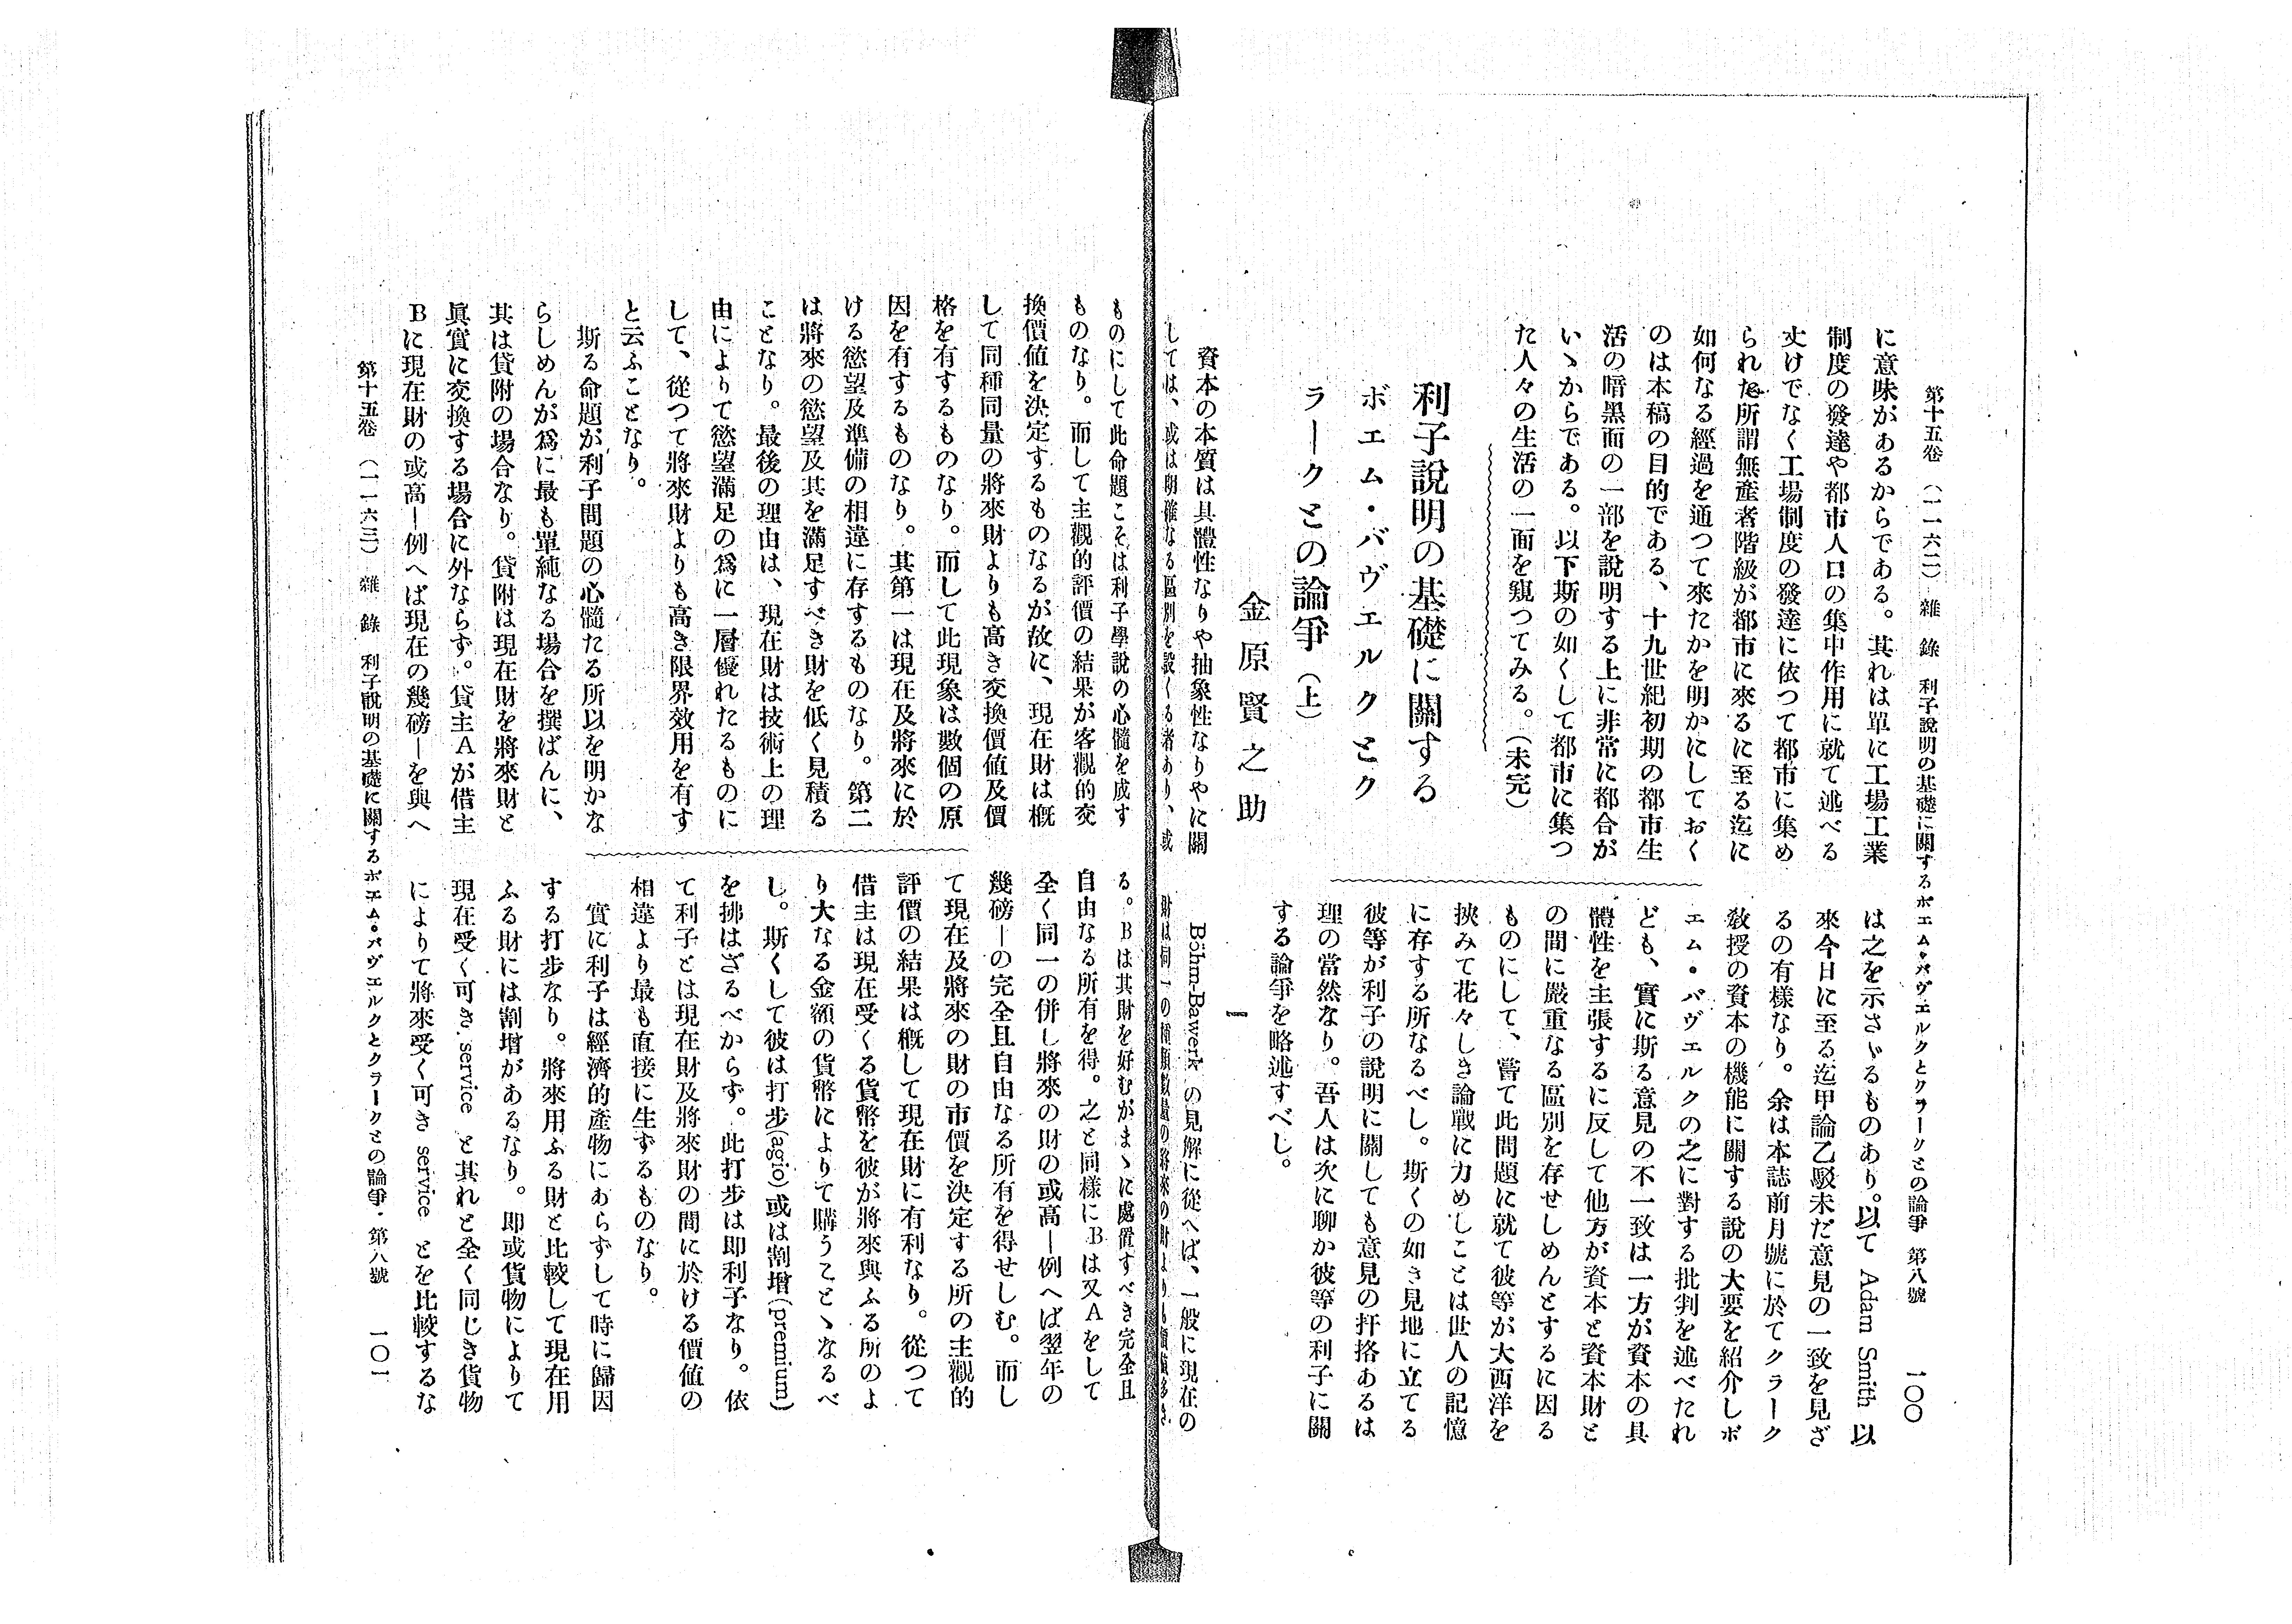 第十五卷 (一一六二) 雜 錄 利子說明の基礎に關するボエム・バヴエルクとクラークとの論爭 第八號 一〇〇
に意味があるからである。其れは單に工場工業
制度の發達や都市人口の集中作用に就て述べる
丈けでなく工場制度の發達に依つて都市に集め
られた所謂無產者階級が都市に來るに至る迄に
如何なる經過を通つて來たかを明かにしておく
のは本稿の目的である、十九世紀初期の都市生
活の暗黑面の一部を說明する上に非常に都合が
いゝからである。以下斯の如くして都市に集つ
た人々の生活の一面を窺つてみる。(未完)
利子說明の基礎に關する
ボエム・バヴエルクとク
ラークとの論爭(上)
金原賢之助
資本の本質は具體性なりや抽象性なりやに關
しては、或は明確なる區別を設くる者あり、或
は之を示さゞるものあり。以て Adam Smith 以
來今日に至る迄甲論乙駁未だ意見の一致を見ざ
るの有樣なり。余は本誌前月號に於てクラーク
敎授の資本の機能に關する說の大要を紹介しボ
エム・バヴエルクの之に對する批判を述べたれ
ども、實に斯る意見の不一致は一方が資本の具
體性を主張するに反して他方が資本と資本財と
の間に嚴重なる區別を存せしめんとするに因る
ものにして、嘗て此問題に就て彼等が大西洋を
挾みて花々しき論戰に力めしことは世人の記憶
に存する所なるべし。斯くの如き見地に立てる
彼等が利子の說明に關しても意見の扞挌あるは
理の當然なり。吾人は次に聊か彼等の利子に關
する論爭を略述すべし。
一
Böhm-Bawerk の見解に從へば、一般に現在の
財は同一の種類數量の將來の財よりも價値多き
ものにして此命題こそは利子學說の心髓を成す
ものなり。而して主觀的評價の結果が客觀的交
換價値を決定するものなるが故に、現在財は概
して同種同量の將來財よりも高き交換價値及價
格を有するものなり。而して此現象は數個の原
因を有するものなり。其第一は現在及將來に於
ける慾望及準備の相違に存するものなり。第二
は將來の慾望及其を滿足すべき財を低く見積る
ことなり。最後の理由は、現在財は技術上の理
由によりて慾望滿足の爲に一層優れたるものに
して、從つて將來財よりも高き限界效用を有す
と云ふことなり。
斯る命題が利子問題の心髓たる所以を明かな
らしめんが爲に最も單純なる場合を撰ばんに、
其は貸附の場合なり。貸附は現在財を將來財と
眞實に交換する場合に外ならず。貸主Aが借主
Bに現在財の或高—例へば現在の幾磅—を與へ
る。Bは其財を好むがまゝに處置すべき完全且
自由なる所有を得。之と同樣にBは又Aをして
全く同一の併し將來の財の或高—例へば翌年の
幾磅—の完全且自由なる所有を得せしむ。而し
て現在及將來の財の市價を決定する所の主觀的
評價の結果は概して現在財に有利なり。從つて
借主は現在受くる貨幣を彼が將來與ふる所のよ
り大なる金額の貨幣によりて購うことゝなるべ
し。斯くして彼は打步(agio)或は割增(premium)
を拂はざるべからず。此打步は即利子なり。依
て利子とは現在財及將來財の間に於ける價値の
相違より最も直接に生ずるものなり。
實に利子は經濟的產物にあらずして時に歸因
する打步なり。將來用ふる財と比較して現在用
ふる財には割增があるなり。即或貨物によりて
現在受く可き service と其れと全く同じき貨物
によりて將來受く可き service とを比較するな
第十五卷 (一一六三) 雜 錄 利子說明の基礎に關するボエム・バヴエルクとクラークとの論爭 第八號 一〇一